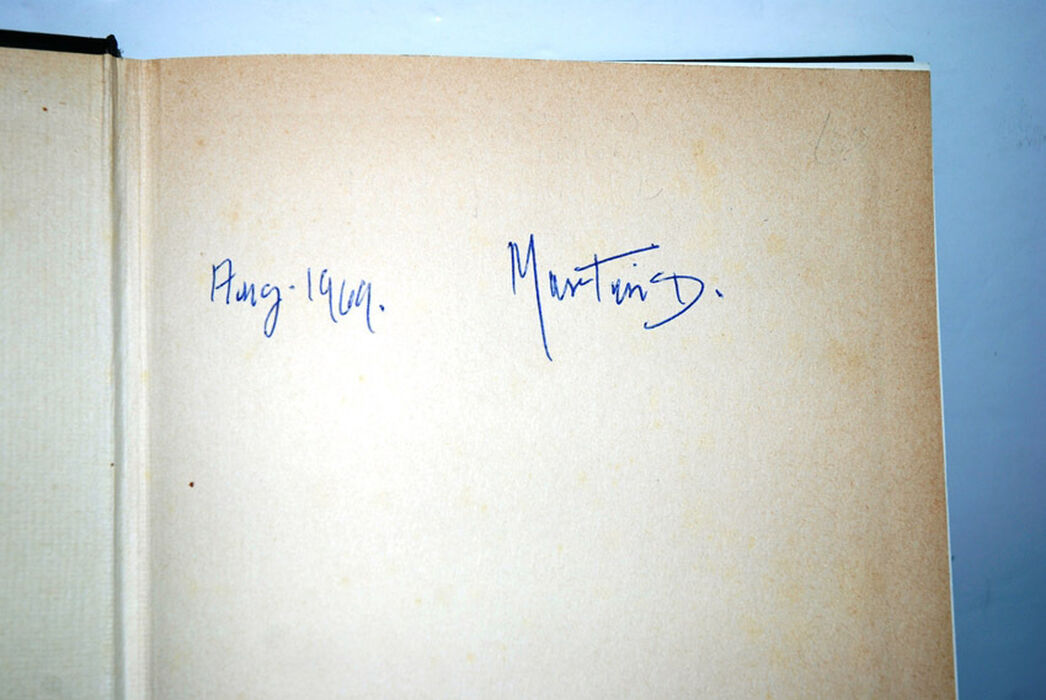 Aug. 1969. Martin D.